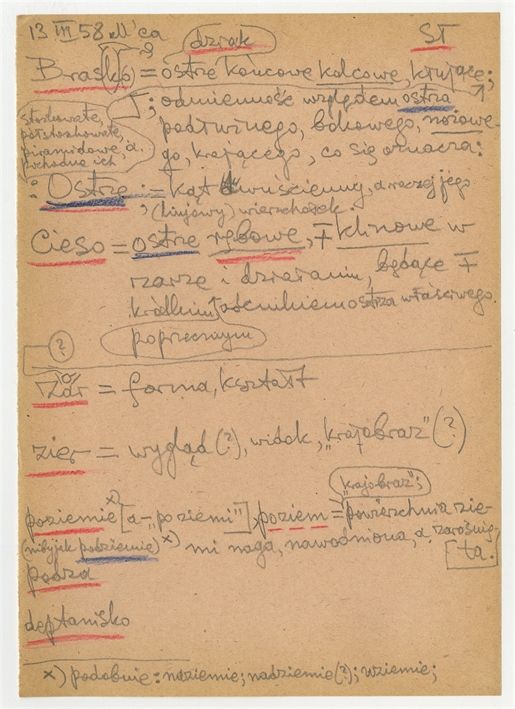 13 III 58 N'ca
dziak
ST
Brask(o) = ostrze końcowe kolcowe, kłujące;
stożkowate,
półstożkowate,
piramidowe, a.
pochodne ich
odmienność względem ostrza
podłużnego, bokowego, nożowe-
go, krającego, co się oznacza:
: Ostrze := kąt dwuścienny, a raczej jego
(linjowy) wierzchołek.
Cieso = ostrze rębowe, klinowe w
zarze i działaniu, będące
krótkim odcinkiem ostrza właściwego.
poprzecznym
(?)
Żar = forma, kształt
zier = wygląd (?), widok, „krajobraz" (?)
„krajobraz";
poziemie x) [a - „po ziemi"], poziem = powierzchnia zie-
(niby jak podziemie) x) mi naga, nawodniona, a. zarośnię-
ta.
podza
deptanisko
x) podobnie: naziemie; nadziemie (?); wziemie;